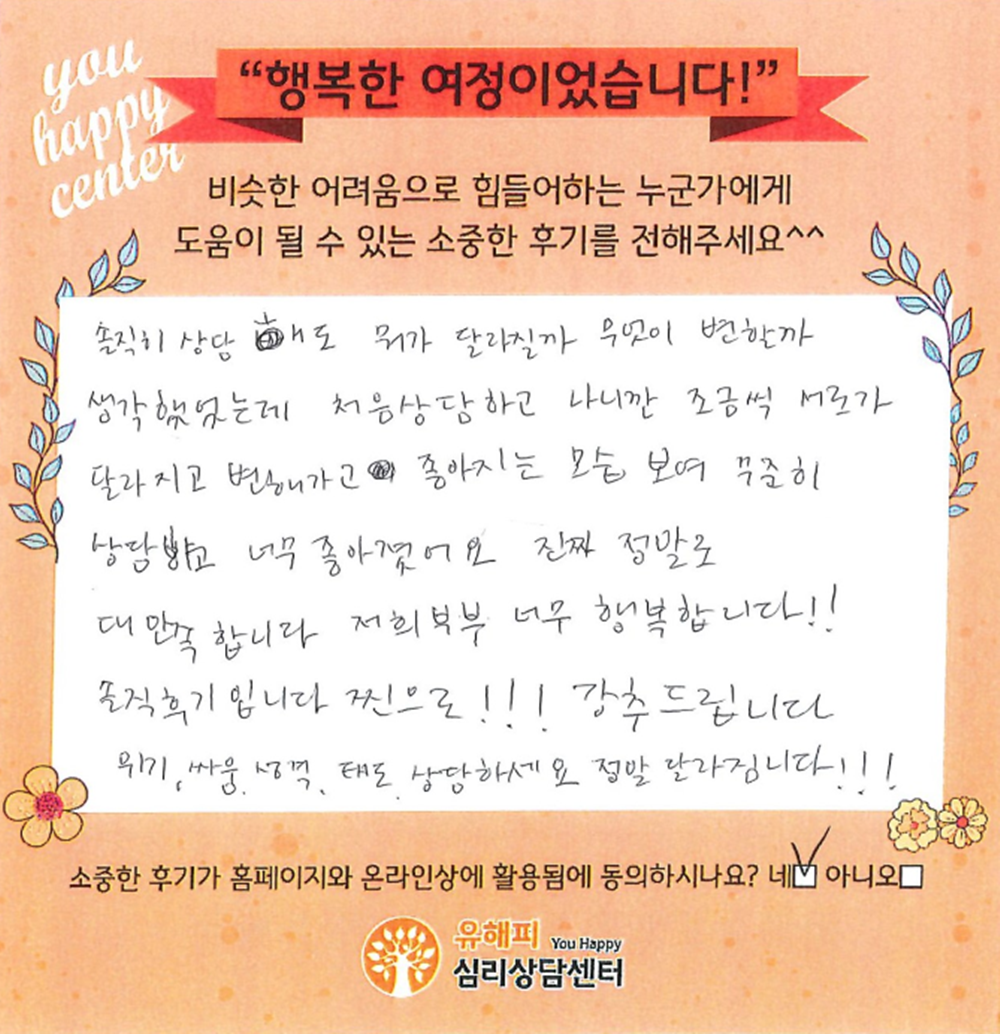 you
happy
center
“행복한 여정이었습니다!”
비슷한 어려움으로 힘들어하는 누군가에게
도움이 될 수 있는 소중한 후기를 전해주세요^^
솔직히 상담 해도 뭐가 달라질까 무엇이 변할까
생각했었는데 처음상담하고 나니깐 조금씩 서로가
달라지고 변해가고 좋아지는 모습 보여 꾸준히
상담하고 너무 좋아졌어요 진짜 정말로
대만족합니다 저희부부 너무 행복합니다!!
솔직후기입니다 찐으로!!! 강추드립니다
위기, 싸움, 성격, 태도, 상담하세요 정말 달라집니다!!!
소중한 후기가 홈페이지와 온라인상에 활용됨에 동의하시나요? 네 아니오
유해피 You Happy
심리상담센터